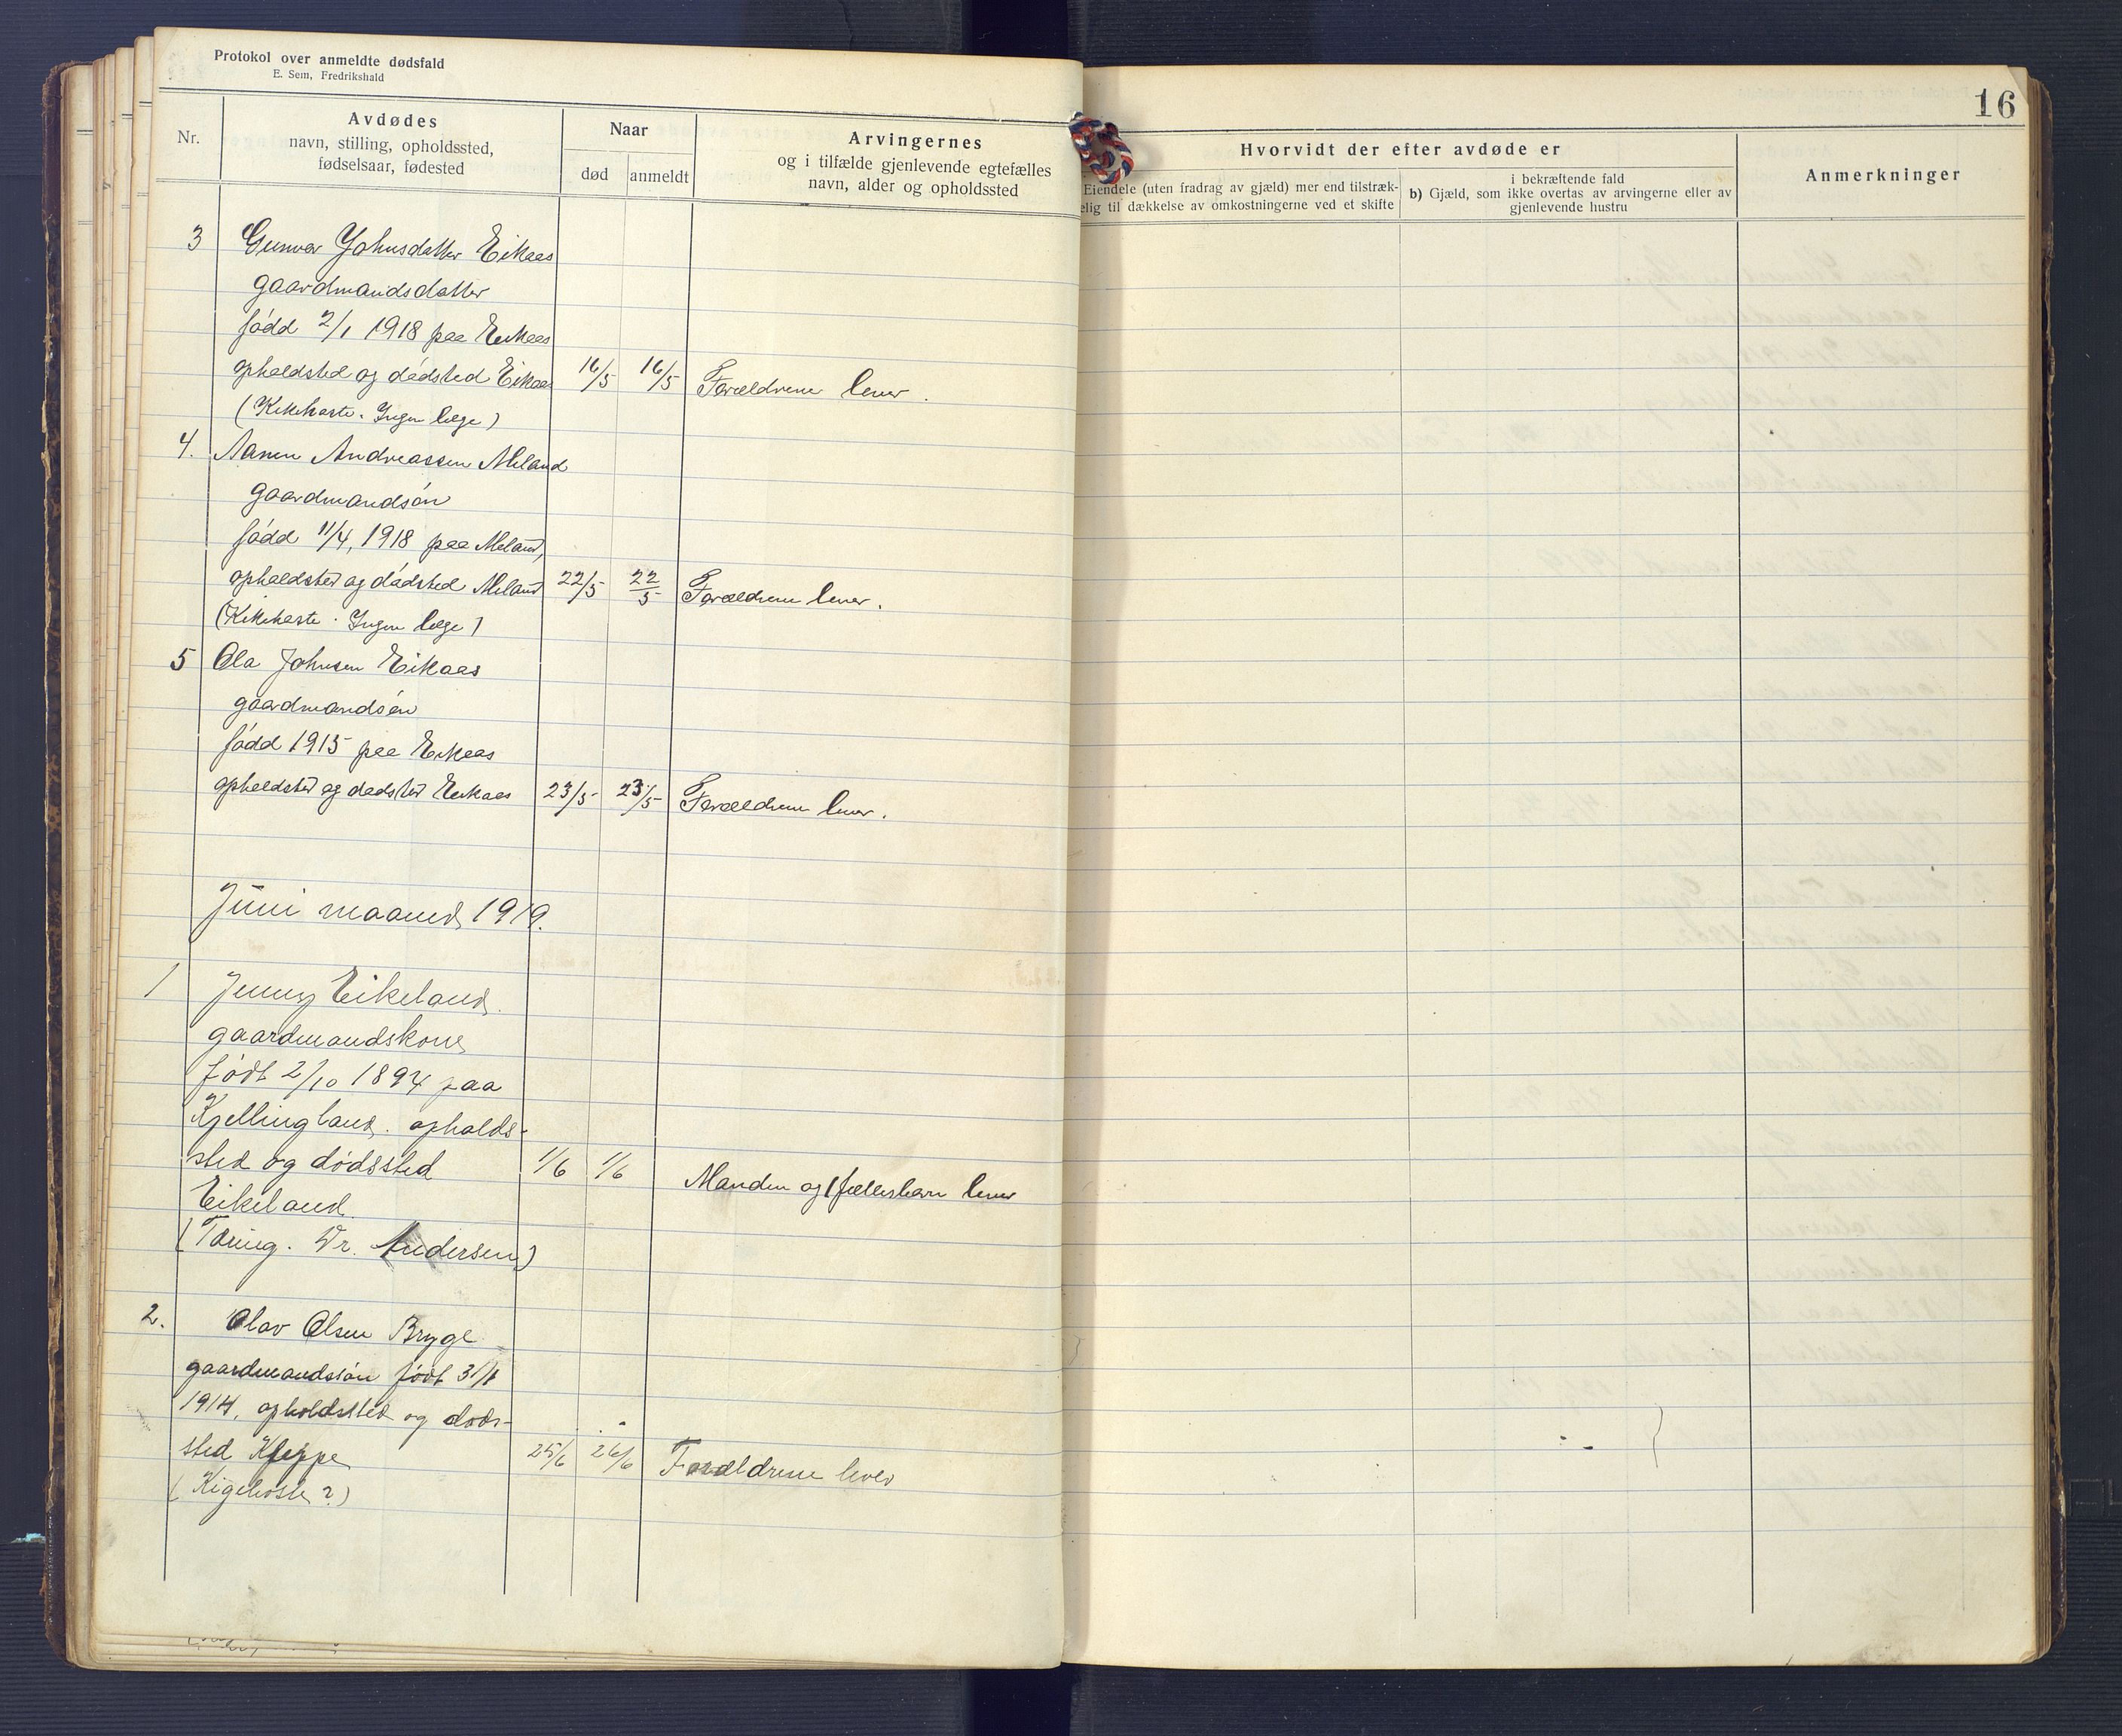 Protokol over anmeldte dødsfald
E. Sem, Fredrikshald
16
Nr.
Avdødes
navn, stilling, opholdssted,
fødselsaar, fødested
Naar
død
anmeldt
Arvingernes
og i tilfælde gjenlevende egtefælles
navn, alder og opholdssted
Hvorvidt der efter avdøde er
Eiendele (uten fradrag av gjæld) mer end tilstræk-
elig til dækkelse av omkostningerne ved et skifte
i bekræftende fald
b) Gjæld, som ikke overtas av arvingerne eller av
gjenlevende hustru
Anmerkninger
3 Gunvor Johnsdatter Eikaas
gaardmandsdatter
född 2/1 1918 paa Eikaas
opholdsted og dödsted Eikaas 16/5 16/5 Forældrene lever.
(Kikhoste. Ingen læge)
4. Aanen Andreassen Meland
gaardmandsön
född 11/4, 1918 paa Meland,
opholdsted og dödsted Meland 22/5 22/5 Forældrene lever.
(Kikhoste. Ingen læge)
5 Ola Johnsen Eikaas
gaardmandsön
född 1915 paa Eikaas
opholdsted og dødsted Eikaas 23/5 23/5 Forældrene lever.
Juni maaned 1919.
1 Jenny Eikeland.
gaardmandskone
født 2/10 1894 paa
Kjellingland. opholds-
sted og dødssted 1/6 1/6 Manden og 1 fællesbarn lever
Eikeland.
(Tæring. Dr. Andersen)
2. Olav Olsen Bryge
gaardmandssøn født 31/1
1914, opholdssted og døds-
sted Kleppe 25/6 26/6 Forældrene lever
(Kigehoste?)